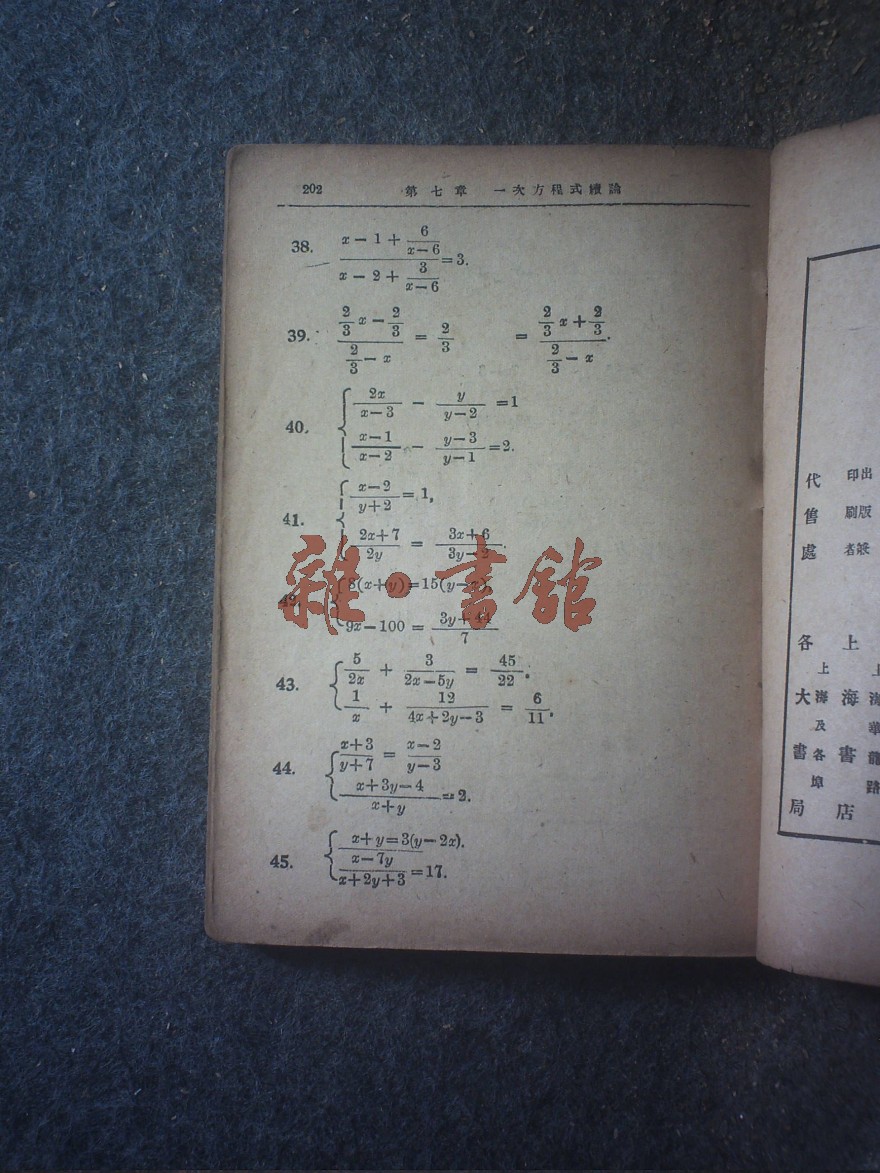 202 第七章 一次方程式續論
38. \frac{x-1+\frac{6}{x-6}}{x-2+\frac{3}{x-6}}=3.
39. \frac{\frac{2}{3}x-\frac{2}{3}}{\frac{2}{3}-x} = \frac{2}{3} = \frac{\frac{2}{3}x+\frac{2}{3}}{\frac{2}{3}-x}.
40. \frac{2x}{x-3} - \frac{y}{y-2} =1
\frac{x-1}{x-2} - \frac{y-3}{y-1} =2.
41. \frac{x-2}{y+2} = 1,
\frac{2x+7}{2y} = \frac{3x+6}{3y-2}.
42. 8(x+y)=15(y-x)
9x-100 = \frac{3y+44}{7}
43. \frac{5}{2x} + \frac{3}{2x-5y} = \frac{45}{22},
\frac{1}{x} + \frac{12}{4x+2y-3} = \frac{6}{11},
44. \frac{x+3}{y+7} = \frac{x-2}{y-3}
\frac{x+3y-4}{x+y} =2.
45. x+y=3(y-2x).
\frac{x-7y}{x+2y+3} =17.
雜·書館
出版
印刷者
代售處
上海書店
上海及各埠
各大書局